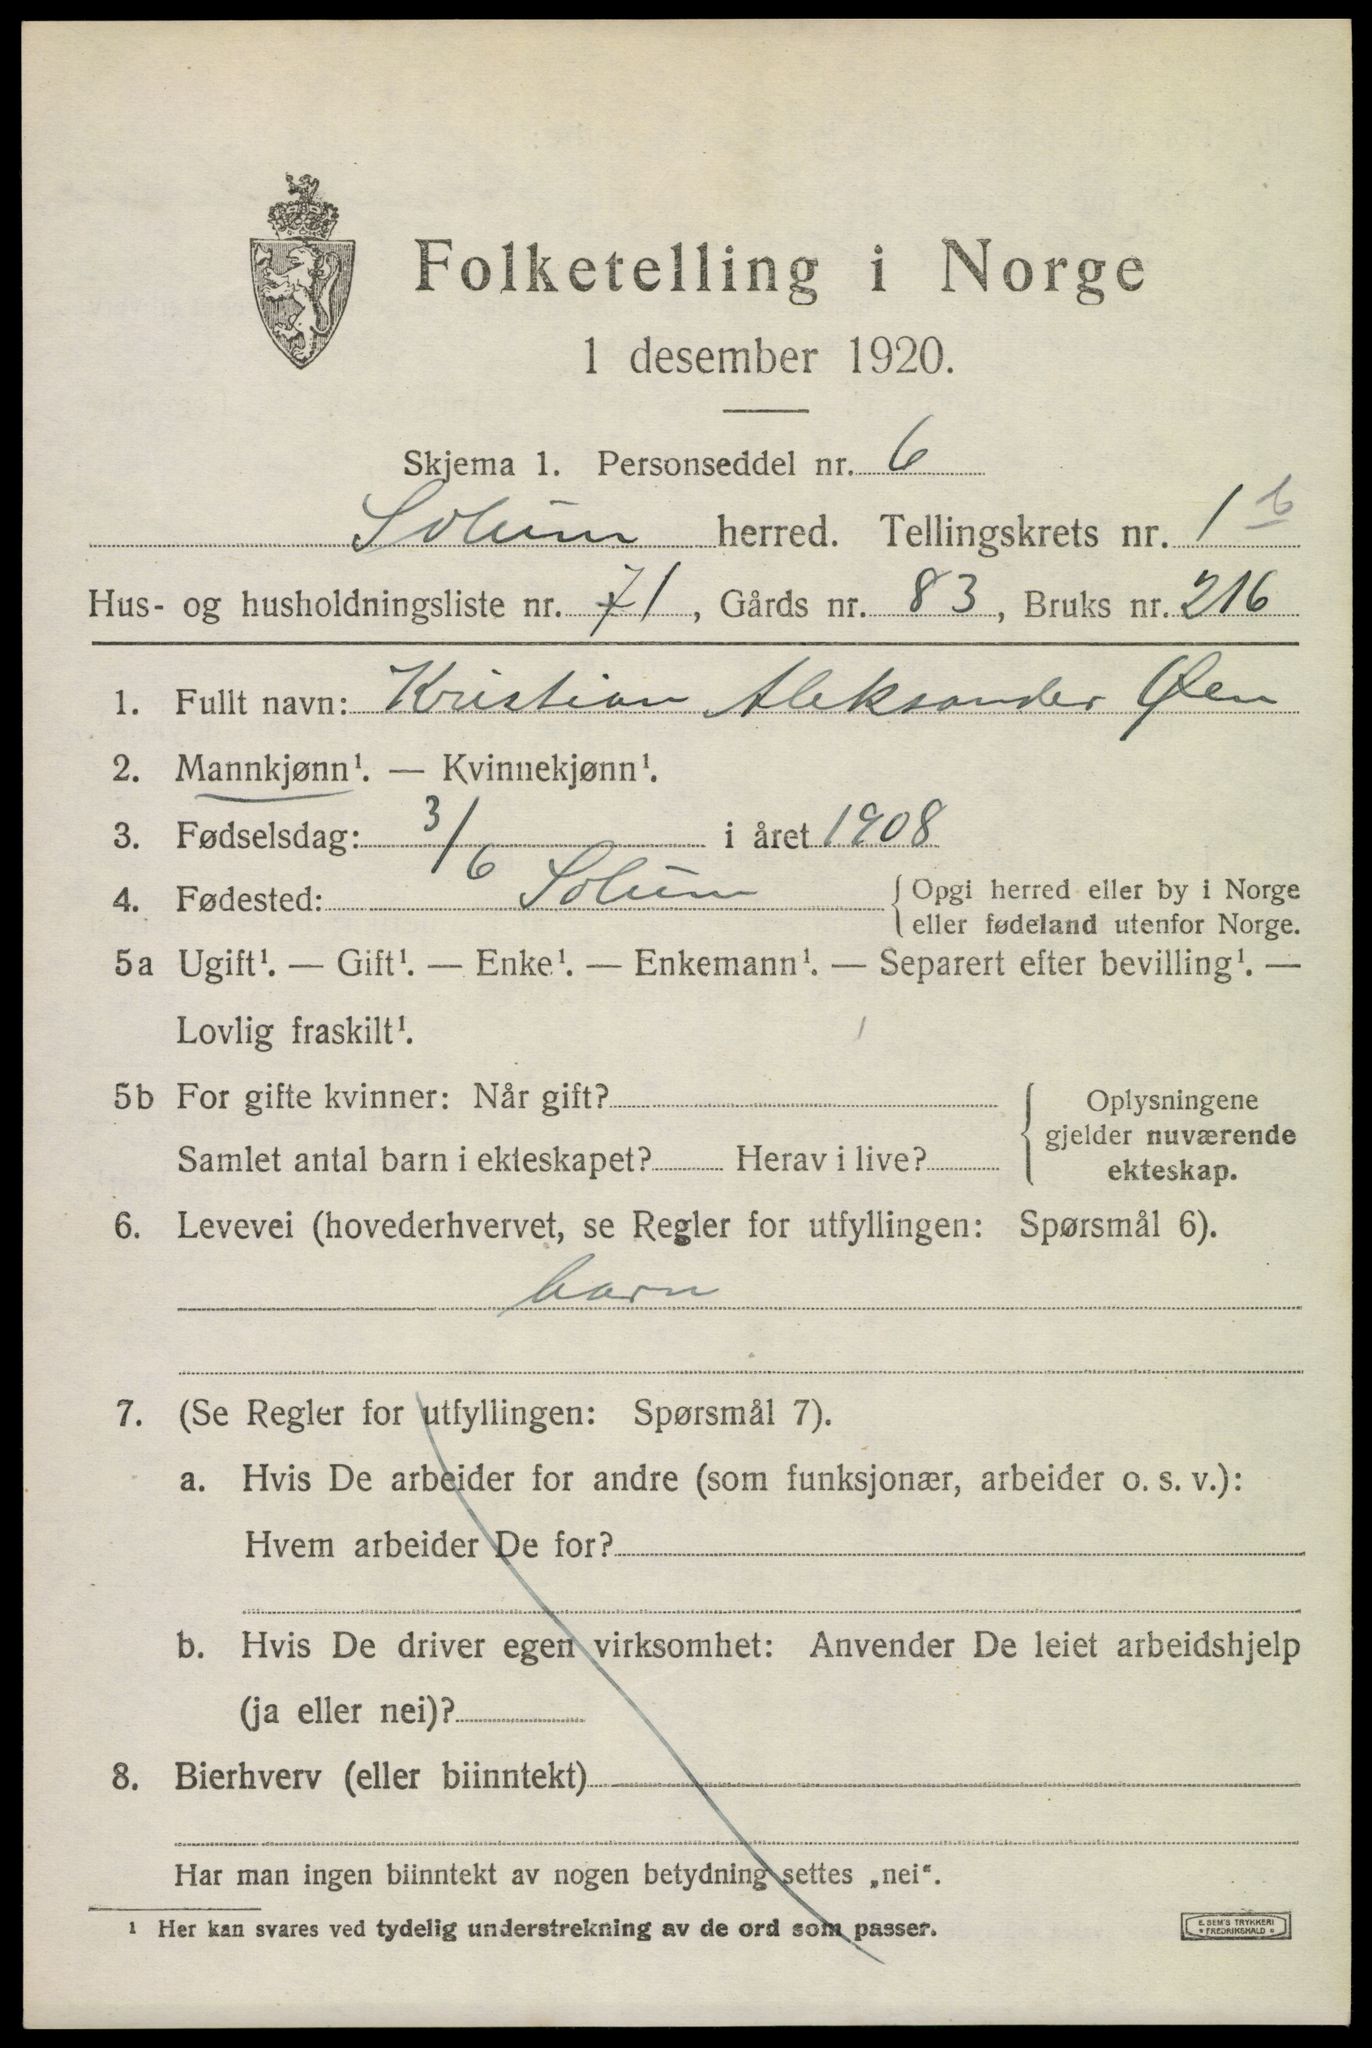 Folketelling i Norge
1 desember 1920.
Skjema 1. Personseddel nr. 6
Solum herred. Tellingskrets nr. 1 b
Hus- og husholdningsliste nr. 71, Gårds nr. 83, Bruks nr. 216
1. Fullt navn: Kristian Aleksander Øen
2. Mannkjønn¹. — Kvinnekjønn¹.
3. Fødselsdag: 3/6 i året 1908
4. Fødested: Solum { Opgi herred eller by i Norge
eller fødeland utenfor Norge.
5a Ugift¹. — Gift¹. — Enke¹. — Enkemann¹. — Separert efter bevilling¹. —
Lovlig fraskilt¹.
5b For gifte kvinner: Når gift?
Samlet antal barn i ekteskapet? Herav i live?
{ Oplysningene
gjelder nuværende
ekteskap.
6. Levevei (hovederhvervet, se Regler for utfyllingen: Spørsmål 6).
barn
7. (Se Regler for utfyllingen: Spørsmål 7).
a. Hvis De arbeider for andre (som funksjonær, arbeider o. s. v.):
Hvem arbeider De for?
b. Hvis De driver egen virksomhet: Anvender De leiet arbeidshjelp
(ja eller nei)?
8. Bierhverv (eller biinntekt)
Har man ingen biinntekt av nogen betydning settes „nei“.
¹ Her kan svares ved tydelig understrekning av de ord som passer.
E. SEM'S TRYKKERI
* FREDRIKSHALD *